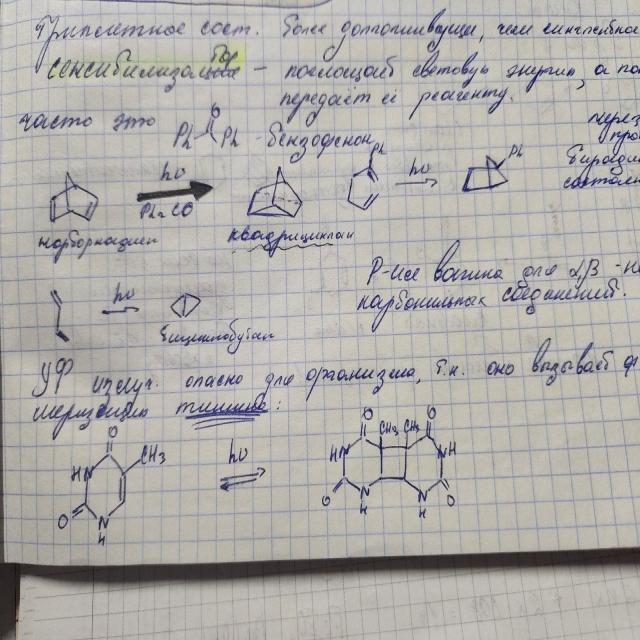 Триплетное сост. более долгоживущее, чем синглетное
сенсибилизатор — поглощает световую энергию, а
передаёт её реагенту.
часто это Ph O Ph - бензофенон
через
Ph
hν
Ph₂CO
hν
Ph
норборнадиен
квадрициклан
hν
бициклобутан
Р-ция важна для αβ-не
карбонильных соединений.
УФ излуч. опасно для организма, т.к. оно вызывает
тимина:
O
CH3
HN
O
N
H
hν
O
CH3 CH3
O
HN
NH
O
N
H
N
H
O